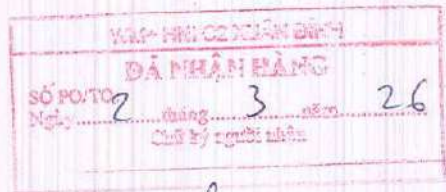 WM+ HNI C2 XUÂN ĐỈNH
ĐÃ NHẬN HÀNG
SỐ PO/TO
Ngày 2 tháng 3 năm 26
Chữ ký người nhận